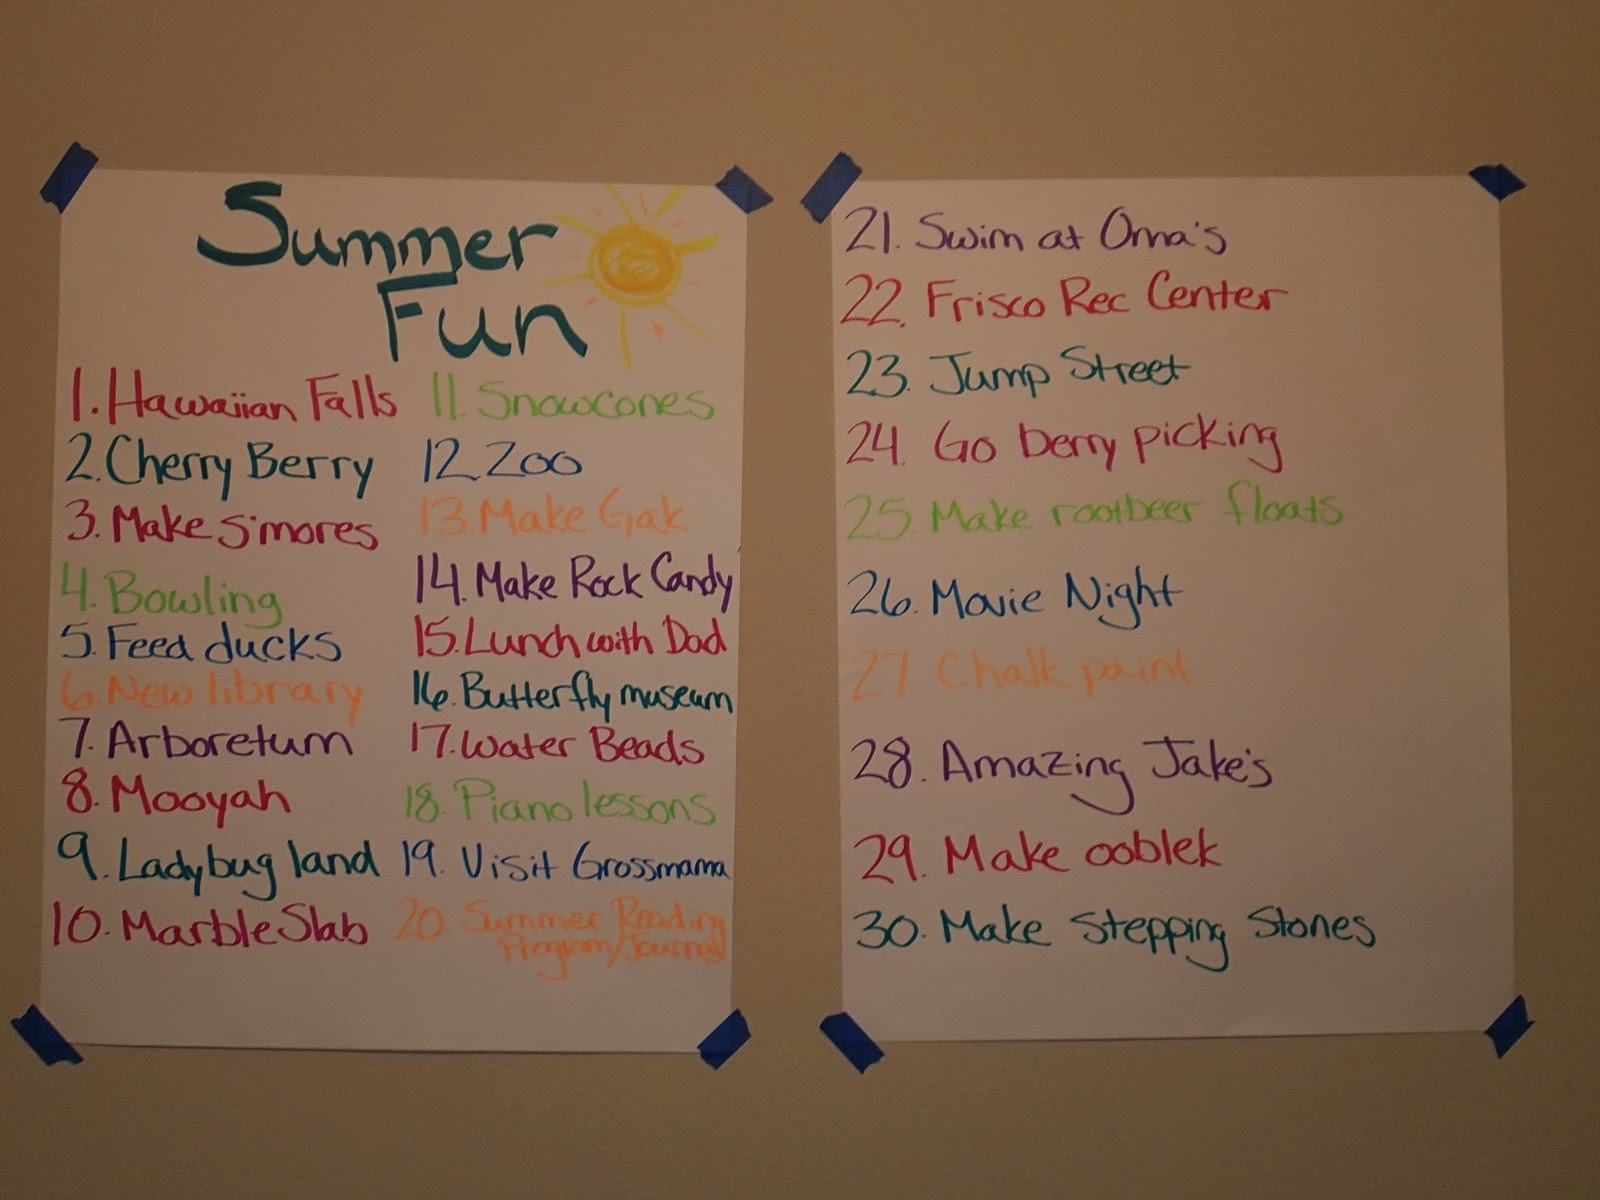 Summer
Fun
1. Hawaiian Falls
2. Cherry Berry
3. Make s'mores
4. Bowling
5. Feed ducks
6. New library
7. Arboretum
8. Mooyah
9. Ladybug land
10. Marble Slab
11. Snowcones
12. Zoo
13. Make Gak
14. Make Rock Candy
15. Lunch with Dad
16. Butterfly museum
17. Water Beads
18. Piano lessons
19. Visit Grossmama
20. Summer Reading
Program/Journal
21. Swim at Oma's
22. Frisco Rec Center
23. Jump Street
24. Go berry picking
25. Make rootbeer floats
26. Movie Night
27. Chalk paint
28. Amazing Jake's
29. Make ooblek
30. Make Stepping Stones